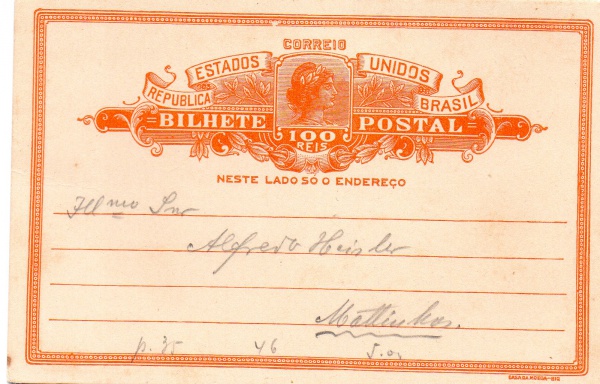 CORREIO
ESTADOS UNIDOS
REPUBLICA BRASIL
BILHETE POSTAL
100
REIS
NESTE LADO SÓ O ENDEREÇO
Illmo Snr
Alfredo Heisler
Mattinhos.
p. 35 46 5.01